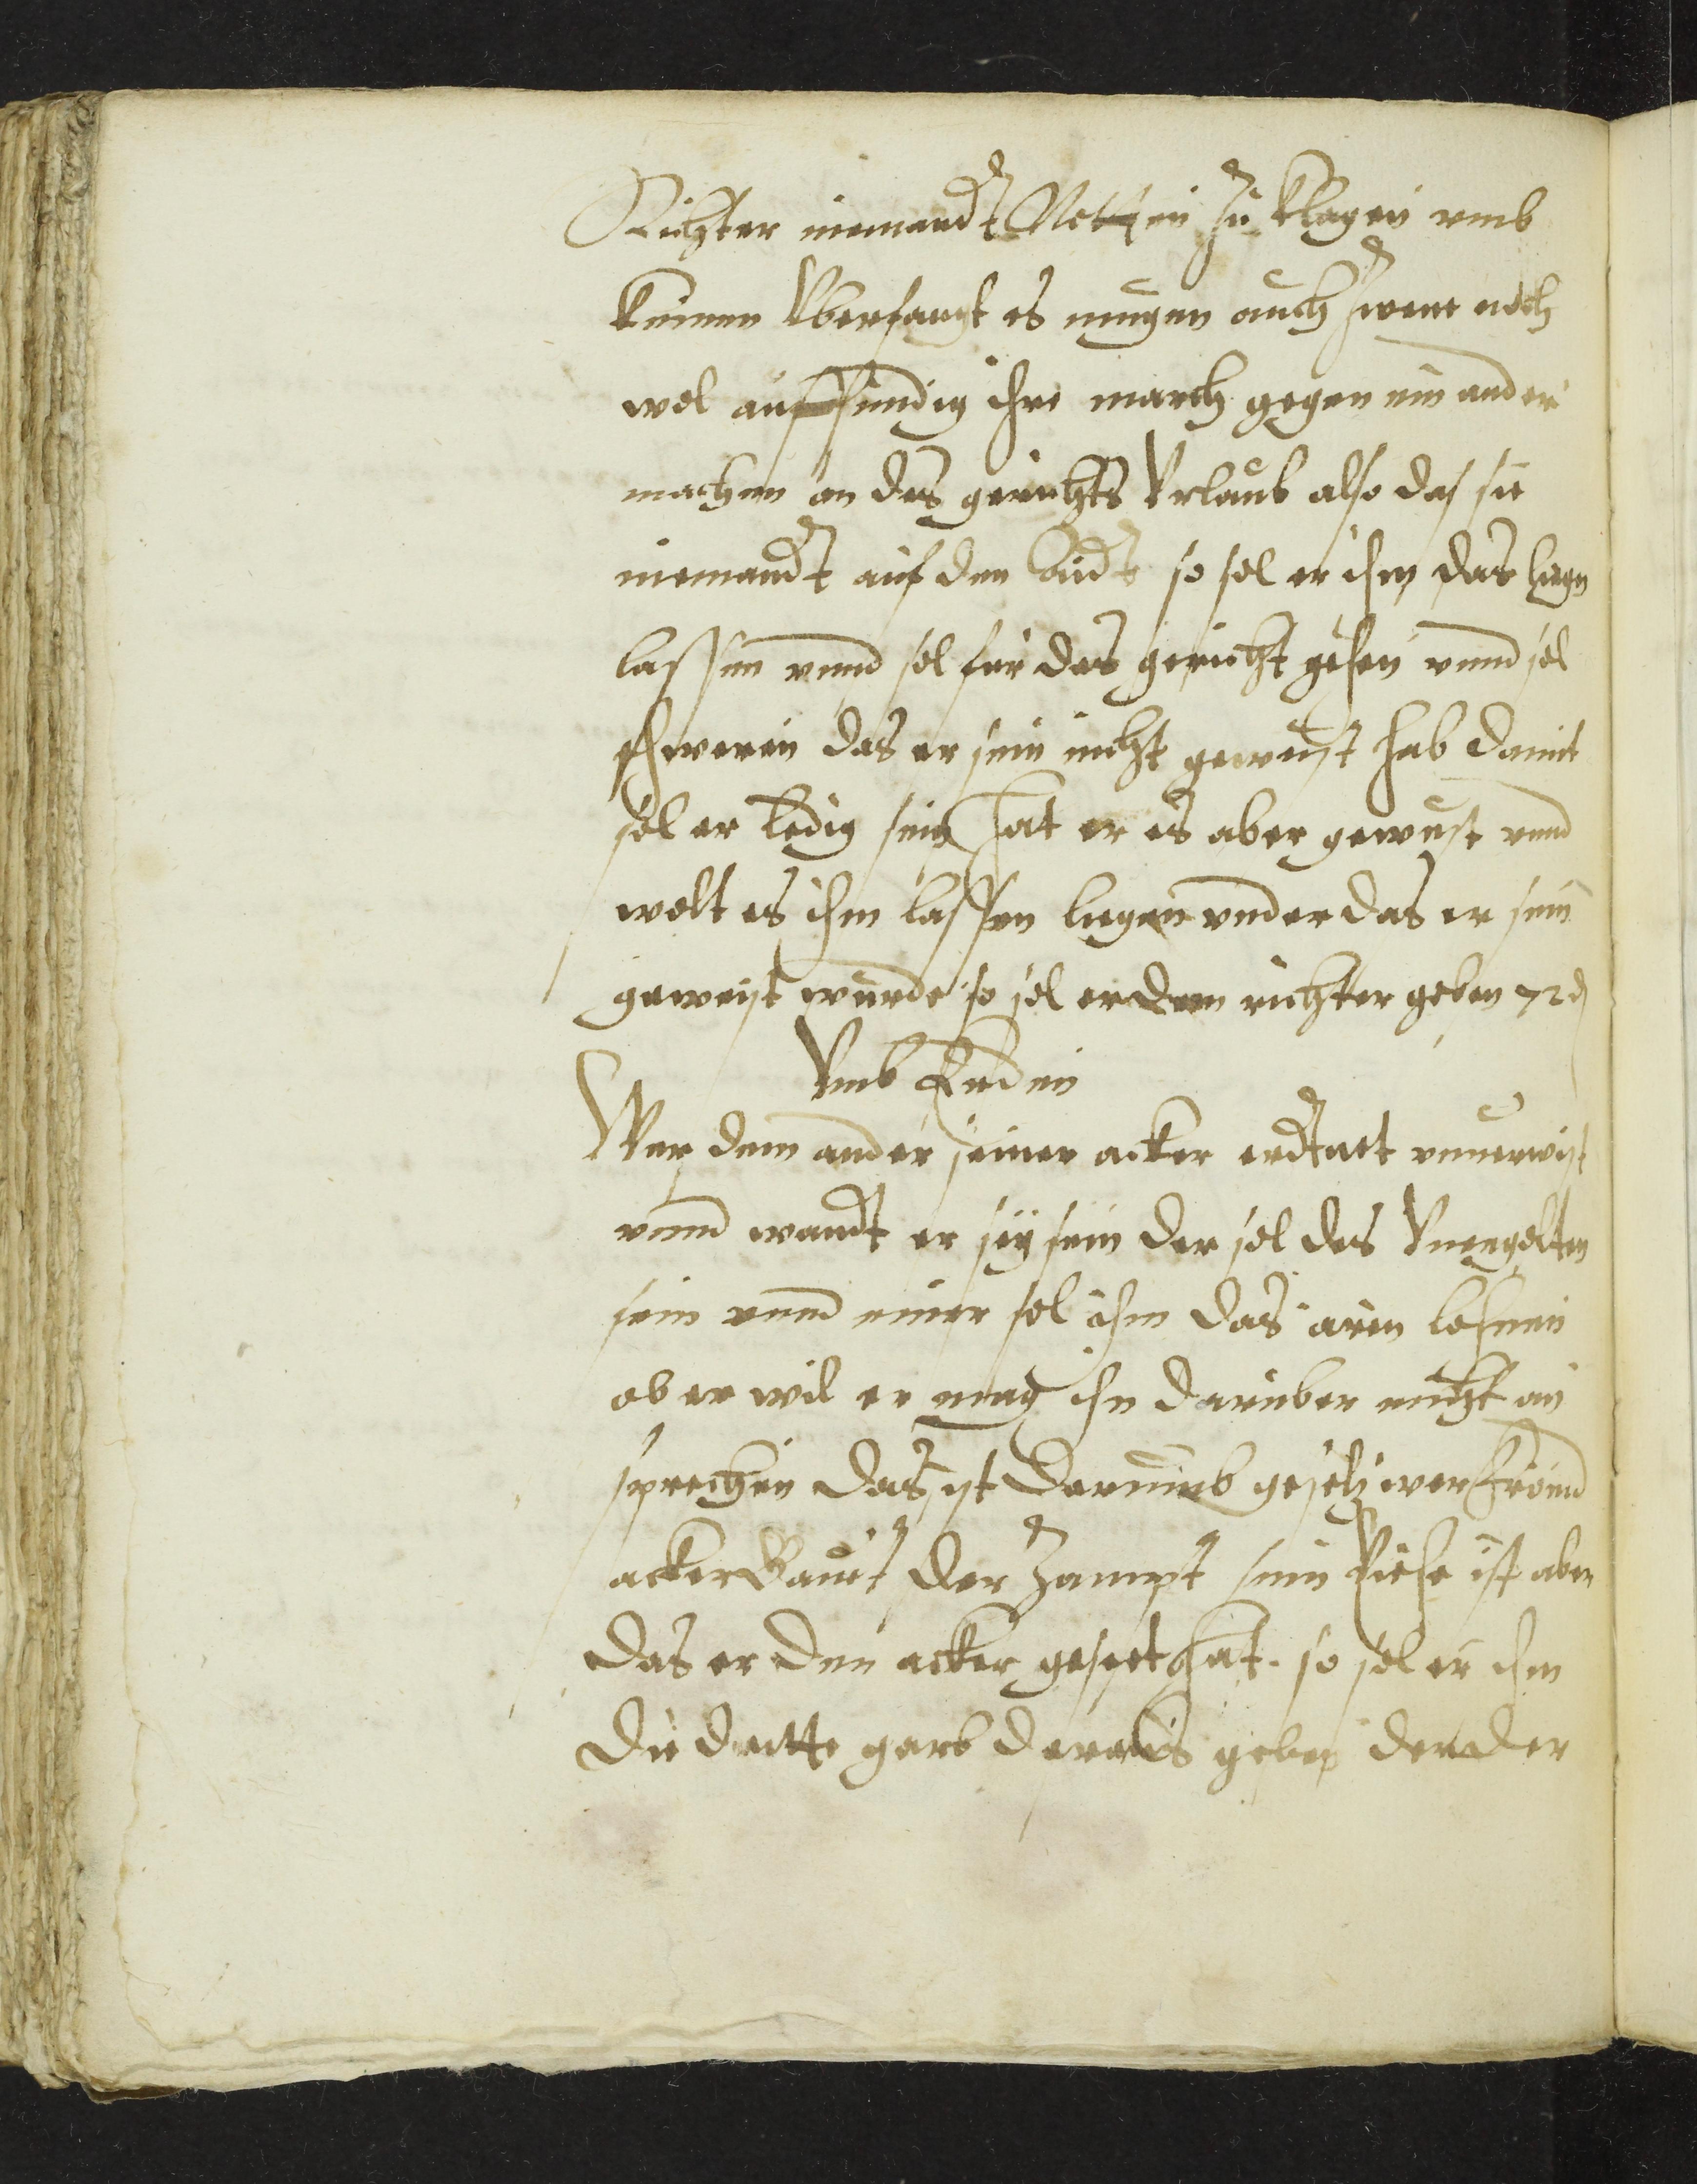 Richter niemandt Notten zu klagen vmb
keinen Vberfangk es mugen auch zwene noch
wol auffündig ihre march gegen ein ander
machen an des gerichts Vrlaub also das sie
niemandt auf den Eidt so sol er ihm das liegn
lassen vnnd sol fur das gericht gehen vnnd sol
schweren das er sein nicht gewust hab damit
sol er ledig sein hat er es aber gewust vnnd
wolt es ihm lassen liegen vnder das er sein
geweist wurde so sol er dem richter geben 72 d
Vmb Erden
Wer dem ander seiner acker erdtatt vnuerwist
vnnd wandt er sey sein der sol des Vnengolten
sein vnnd einer sol ihm das aren lohnen
ob er wil er mag ihn daruber nicht an
sprechen das ist darumb gesetz wer frömd
acker Bauet der Zampt sein Viehe ist aber
das er den acker geseet hat. so sol er ihm
die dritte garb daraus geben der der